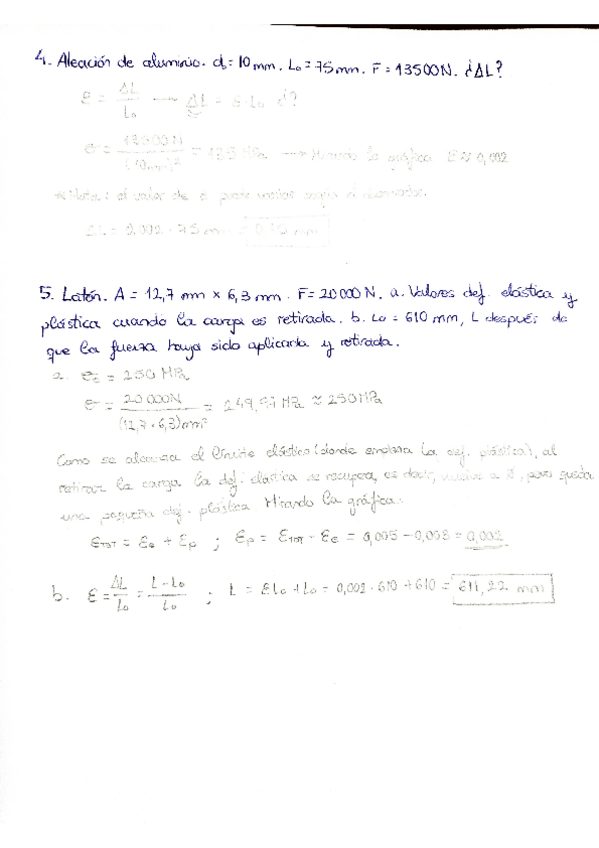 4. Aleación de aluminio. d₀ = 10 mm. L₀ = 75 mm. F = 13500 N. ¿ΔL?
ε = ΔL / L₀ → ΔL = ε · L₀ ¿?
= 13500 N / = MPa → Mirando la gráfica ε ≈ 0,002
* Nota: el valor de ε puede variar según el
ΔL = 0.002 · 75 mm = 0,15 mm
5. Latón. A = 12,7 mm × 6,3 mm. F = 20000 N. a. Valores def. elástica y
plástica cuando la carga es retirada. b. L₀ = 610 mm, L después de
que la fuerza haya sido aplicada y retirada.
a. = 250 MPa
σ = 20 000N / (12,7 · 6,3) mm² = 249,97 MPa ≈ 250 MPa
Como se alcanza el límite elástico (donde empieza la def. plástica), al
retirar la carga la def. elástica se recupera, es decir, vuelve a , pero queda
una pequeña def. plástica. Mirando la gráfica:
ε_TOT = ε_e + ε_p ; ε_p = ε_TOT - ε_e = 0,005 - 0,003 = 0,002
b. ε = ΔL / L₀ = L - L₀ / L₀ ; L = εL₀ + L₀ = 0,002 · 610 + 610 = 611,22 mm